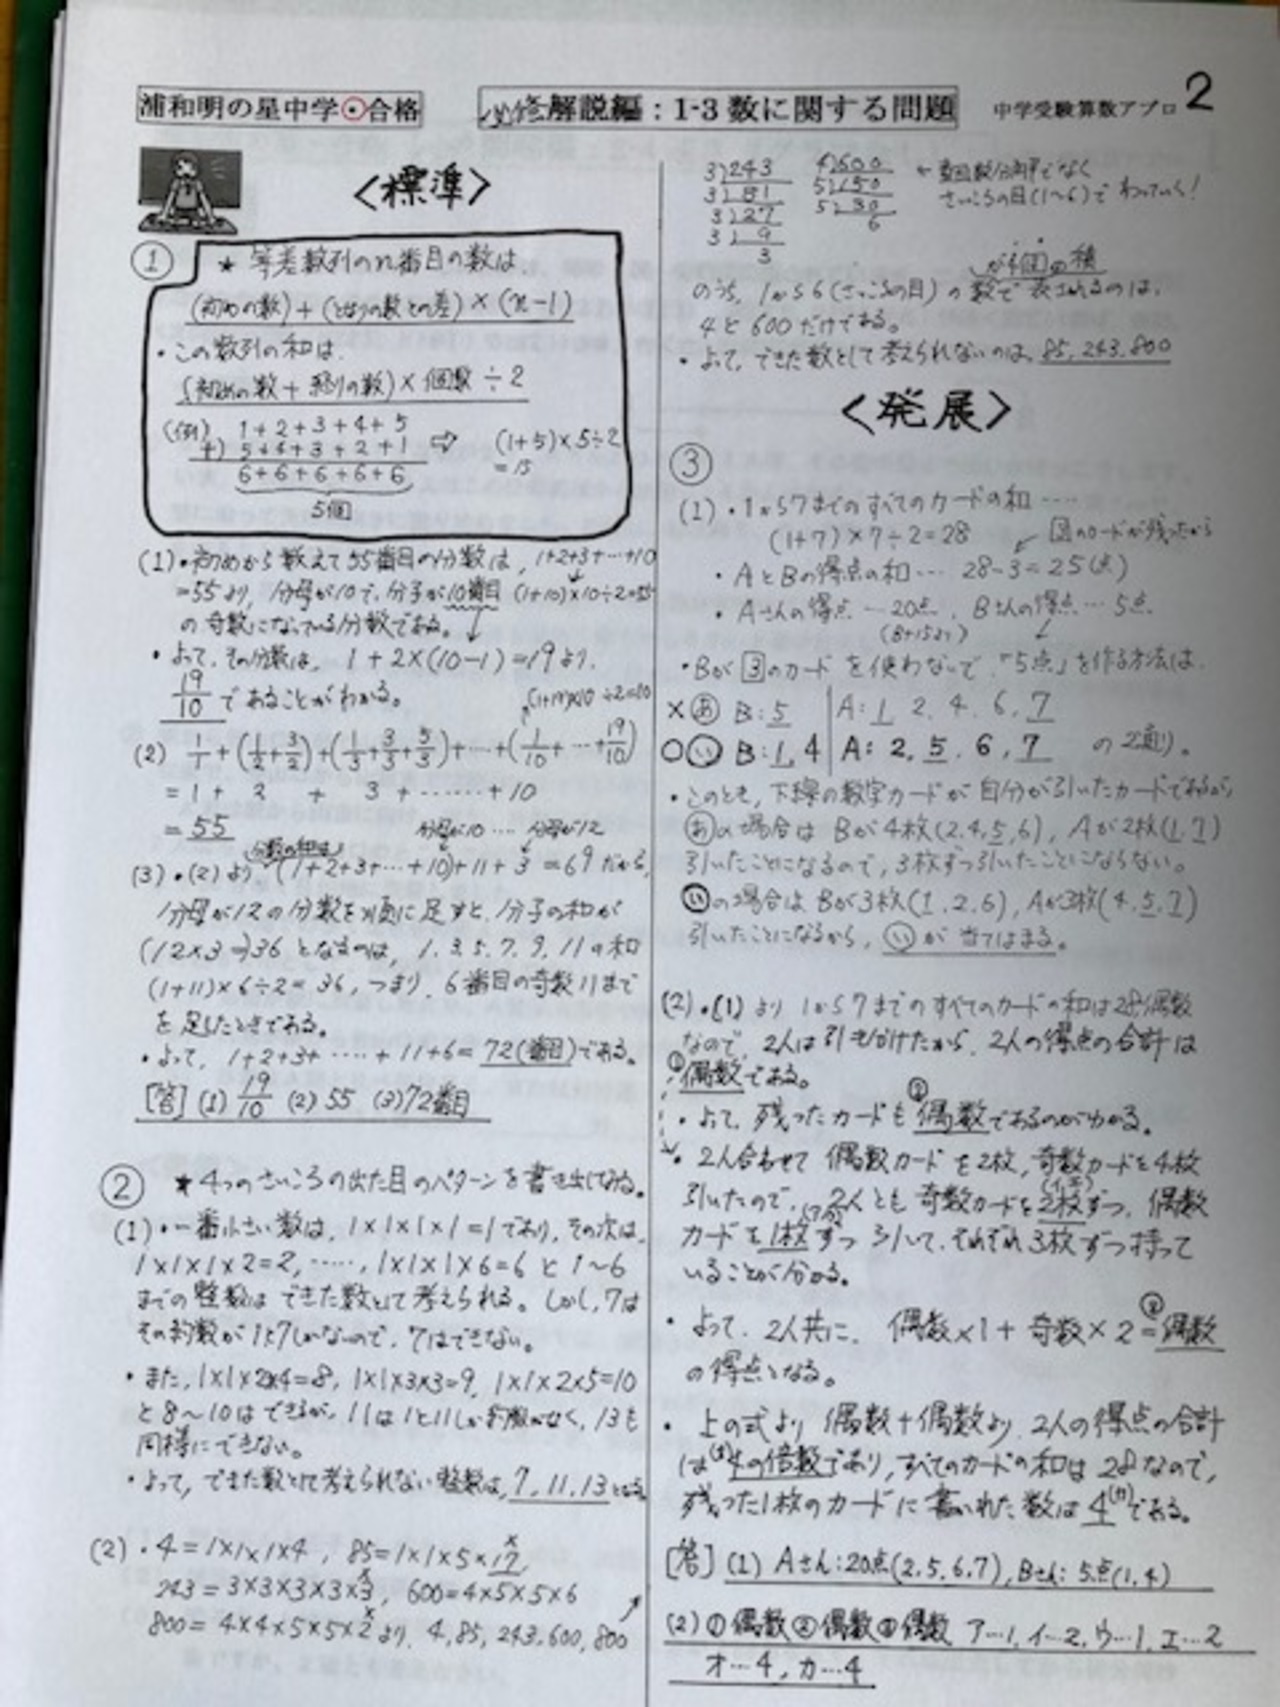 浦和明の星中学⊙合格
必修解説編：1-3 数に関する問題
中学受験算数アプロ 2
〈標準〉
① ★ 等差数列のn番目の数は、
(初めの数)+(となりの数との差)×(n-1)
・この数列の和は、
(初めの数+終りの数)×個数÷2
(例) 1+2+3+4+5
+) 5+4+3+2+1 ⇨ (1+5)×5÷2
6+6+6+6+6 =15
5個
(1)・初めから数えて55番目の分数は、1+2+3+…+10
=55より、分母が10で、分子が10番目 (1+10)×10÷2=55
の奇数になっている分数である。
・よって、その分数は、1+2×(10-1)=19より、
19/10 であることがわかる。
(1+19)×10÷2=10
(2) 1/1+(1/2+3/2)+(1/3+3/3+5/3)+…+(1/10+…+19/10)
=1+ 2 + 3 +……+10
=55
分母が10…. 分母が12
分数の和は
(3)・(2)より (1+2+3+…+10)+11+3=69だから、
分母が12の分数を順に足すと、分子の和が
(12×3=)36となるのは、1.3.5.7.9.11の和
(1+11)×6÷2=36, つまり、6番目の奇数11まで
を足したときである。
・よって、1+2+3+……+11+6=72(番目)である。
[答](1) 19/10 (2) 55 (3)72番目
② ★4つのさいころの出た目のパターンを書き出してみる。
(1)・一番小さい数は、1×1×1×1=1であり、その次は、
1×1×1×2=2,……,1×1×1×6=6と1〜6
までの整数はできた数として考えられる。しかし、7は
その約数が1と7しかないので、7はできない。
・また、1×1×2×4=8, 1×1×3×3=9, 1×1×2×5=10
と8〜10はできるが、11は1と11しか約数がなく、13も
同様にできない。
・よって、できた数として考えられない整数は、7,11,13となる。
(2)・4=1×1×1×4, 85=1×1×5×17,
243=3×3×3×3×3, 600=4×5×5×6
800=4×4×5×5×2より、4,85,243,600,800
3)243 4)600
3)81 5)150
3)27 5)30
3)9 6
3
でなく
さいころの目(1〜6)で わっていく!
が4個の積
のうち、1から6(さいころの目)の数で表されるのは、
4と600だけである。
・よって、できた数として考えられないのは、85,243,800
〈発展〉
③
(1)・1から7までのすべてのカードの和….
(1+7)×7÷2=28 3のカードが残ったから
・AとBの得点の和… 28-3=25(点)
・Aさんの得点…20点、Bさんの得点…5点
(B+15より)
・Bが3のカードを使わないで、「5点」を作る方法は、
×あ B:5 A:1 2.4.6.7
○い B:1,4 A:2.5.6.7 の2通り。
・このとき、下線の数字カードが自分が引いたカードであるから
あの場合はBが4枚(2,4,5,6), Aが2枚(1,7)
引いたことになるので、3枚ずつ引いたことにならない。
いの場合はBが3枚(1,2,6), Aが3枚(4,5,7)
引いたことになるから、いが当てはまる。
(2)・(1)より1から7までのすべてのカードの和は28で偶数
なので、2人は引き分けたから、2人の得点の合計は
①偶数である。
・よって、残ったカードも②偶数であるのがわかる。
・2人合わせて偶数カードを2枚,奇数カードを4枚
引いたので、2人とも奇数カードを2枚(イ,エ)ずつ、偶数
カードを1枚(ア,ウ)ずつ引いて、それぞれ3枚ずつ持って
いることが分かる。
・よって、2人共に、偶数×1+奇数×2=③偶数
の得点となる。
・上の式より 偶数+偶数より、2人の得点の合計
は(オ)4の倍数であり、すべてのカードの和は28なので、
残った1枚のカードに書かれた数は4(カ)である。
[答](1) Aさん:20点(2,5,6,7), Bさん:5点(1,4)
(2)①偶数②偶数③偶数 ア…1,イ…2,ウ…1,エ…2
オ…4, カ…4